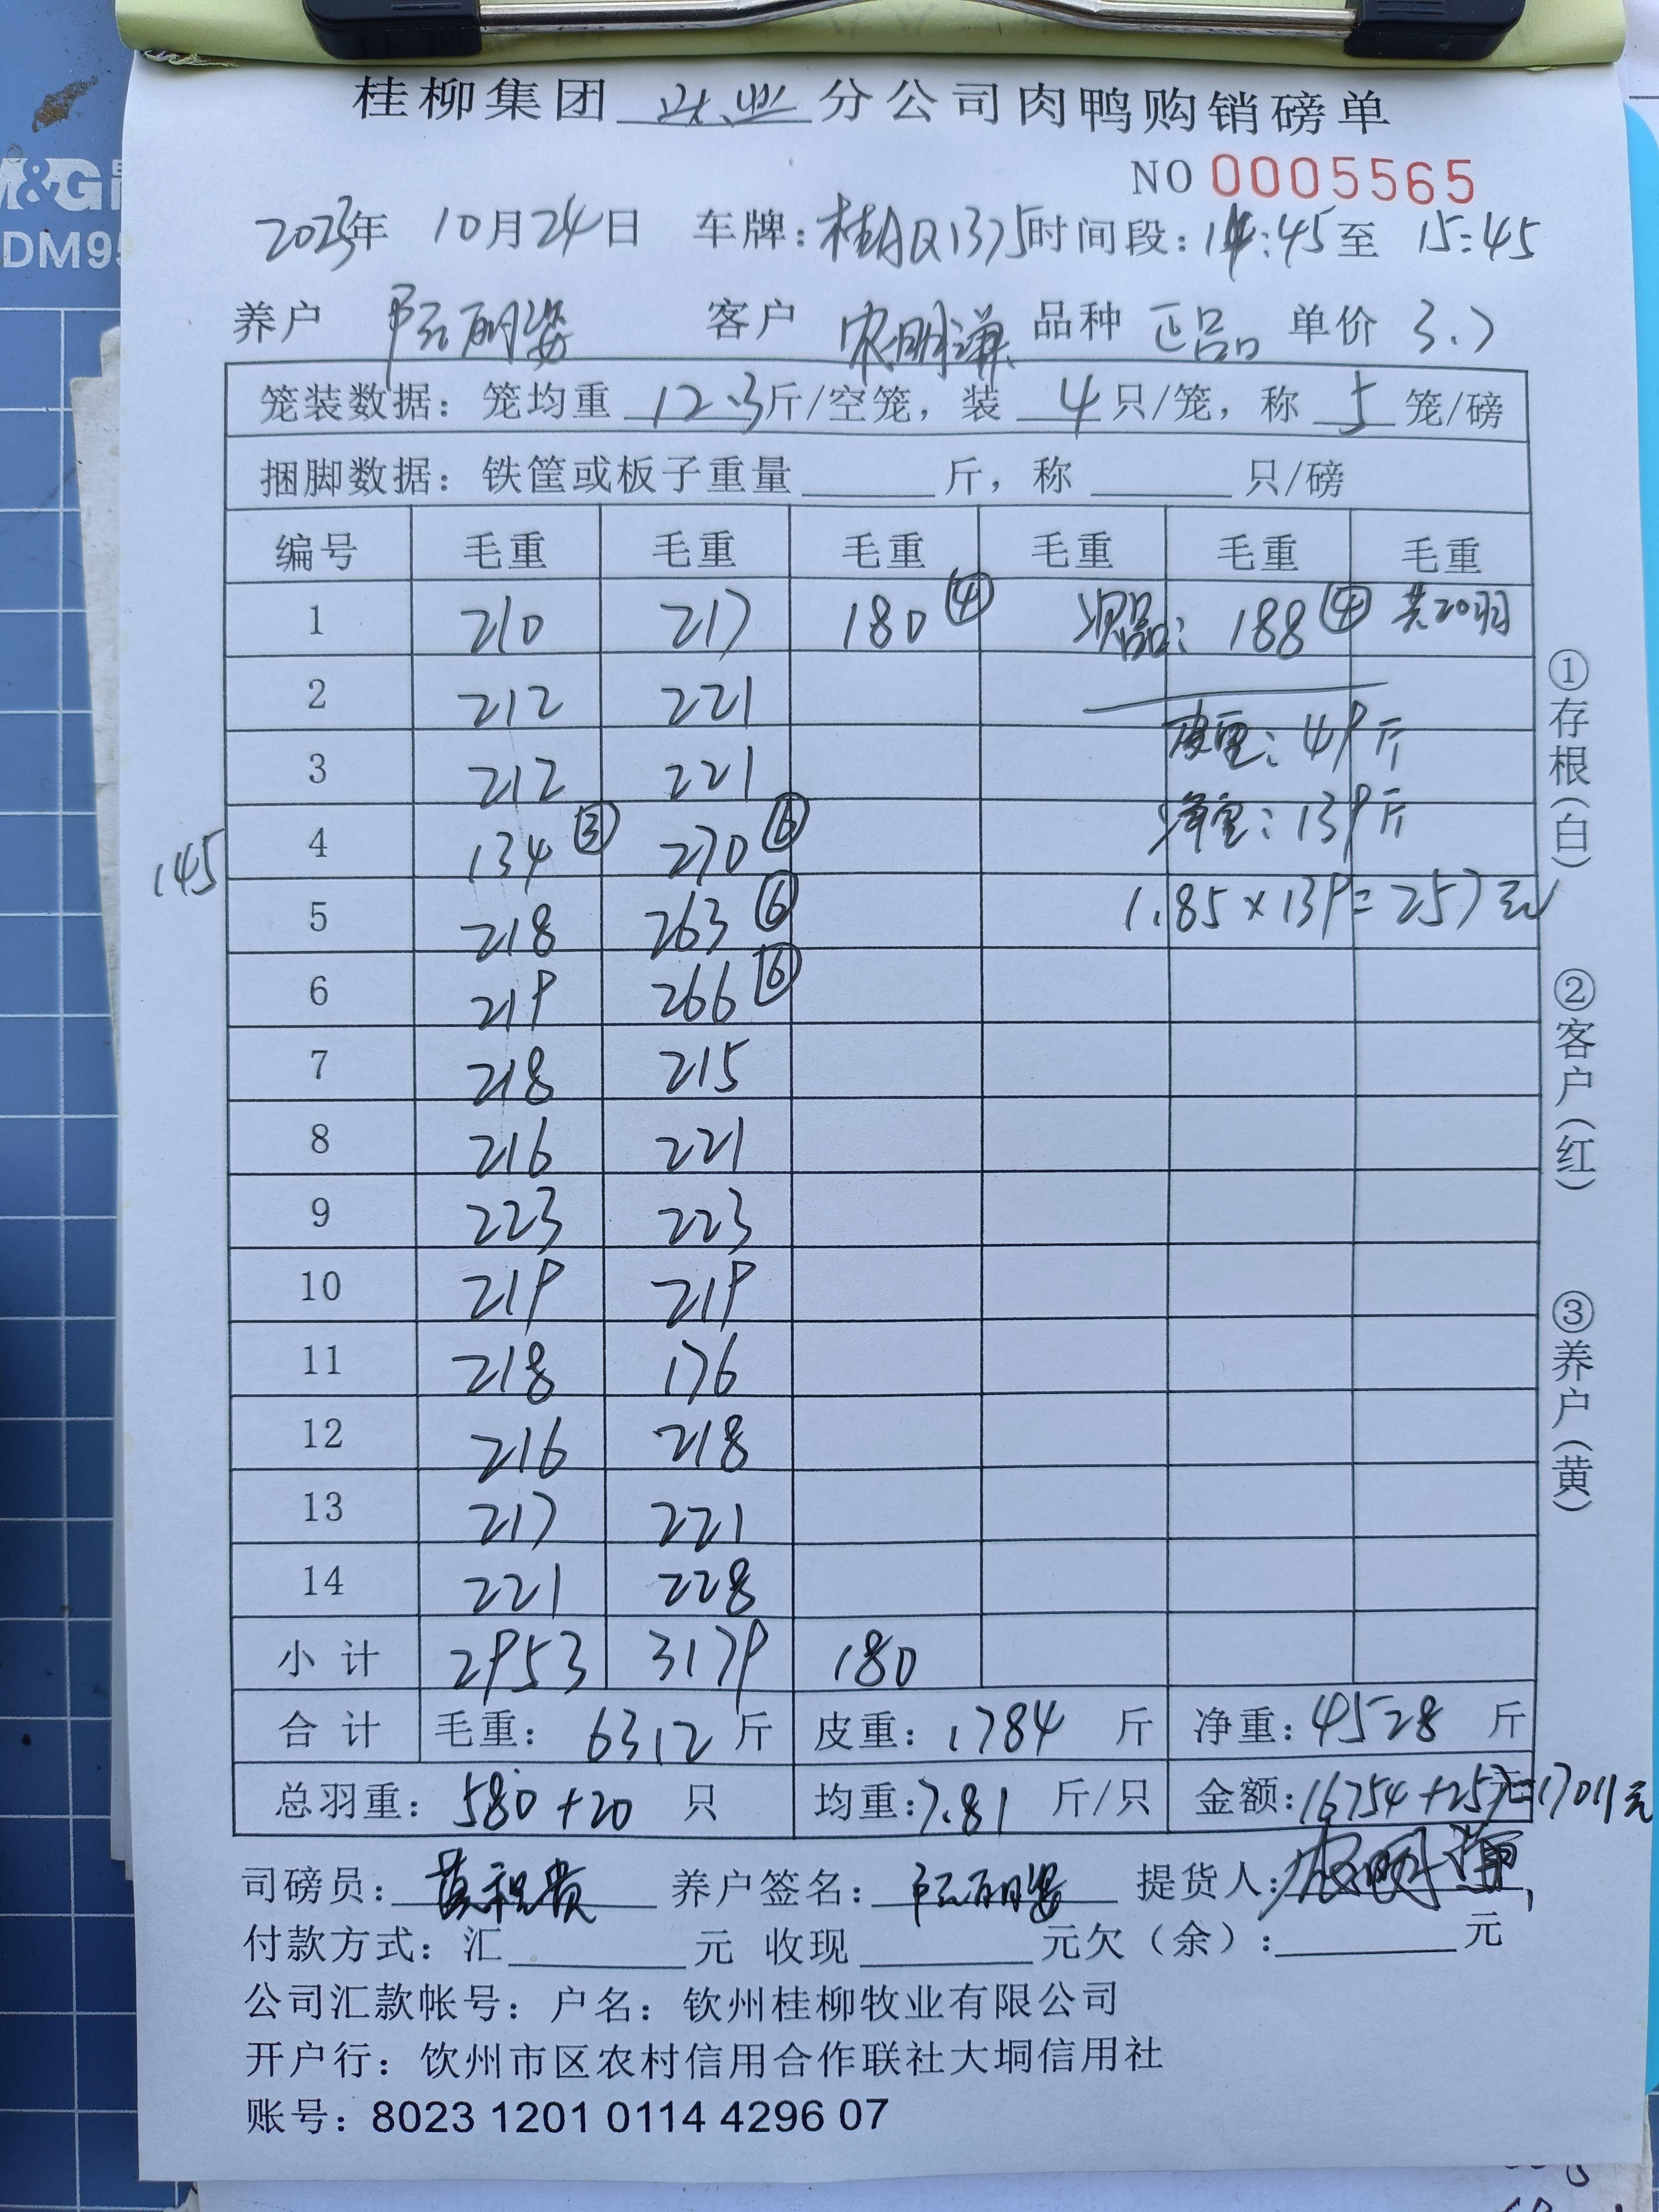 桂柳集团 兴业 分公司肉鸭购销磅单
NO 0005565
2023年 10月24日 车牌：桂AQ1375 时间段：14:45至 15:45
养户 阮丽姿 客户 农明谦 品种 正品 单价 3.7
笼装数据：笼均重 12.3 斤/空笼，装 4 只/笼，称 5 笼/磅
捆脚数据：铁筐或板子重量 斤，称 只/磅
编号 毛重 毛重 毛重 毛重 毛重 毛重
1 210 217 180 ④ 次品：188 ④ 共20羽
2 212 221
皮重：49斤
3 212 221
净重：139斤
145 4 134 ③ 270 ⑥
1.85×139=257元
5 218 263 ⑥
6 219 266 ⑥
7 218 215
8 216 221
9 223 223
10 219 219
11 218 176
12 216 218
13 217 221
14 221 228
小计 2953 3179 180
合计 毛重：6312 斤 皮重：1784 斤 净重：4528 斤
总羽重：580+20 只 均重：7.81 斤/只 金额：16754+257元=17011元
司磅员： 养户签名：阮丽姿 提货人：农明谦
付款方式：汇 元 收现 元欠（余）： 元
公司汇款帐号：户名：钦州桂柳牧业有限公司
开户行：饮州市区农村信用合作联社大垌信用社
账号：8023 1201 0114 4296 07
①存根（白）
②客户（红）
③养户（黄）
M&G
DM95